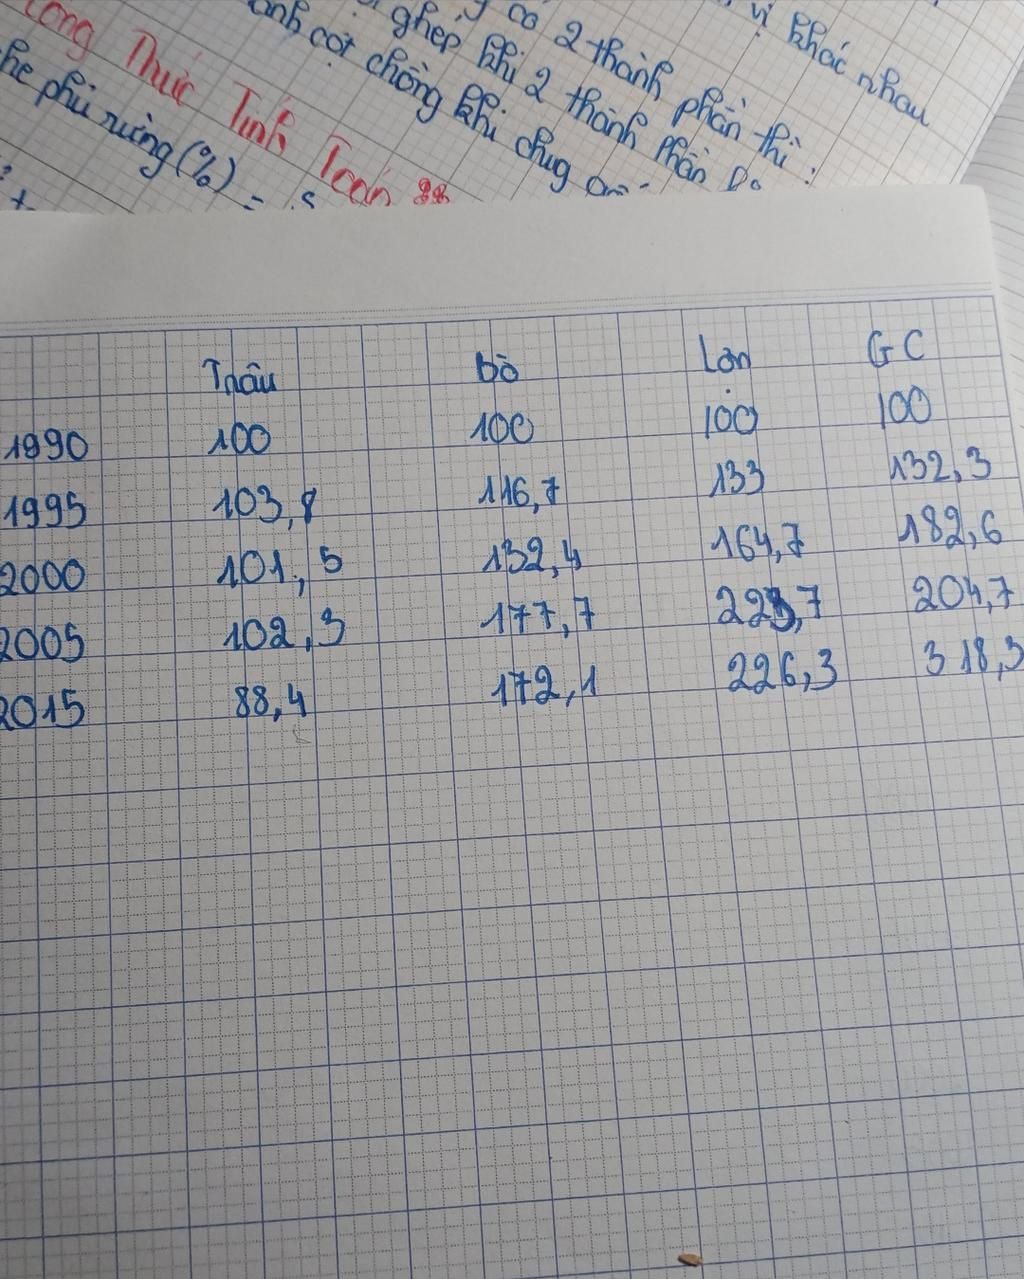 vị khác nhau
có 2 thành phần thì :
ghép khi 2 thành phần
cột chồng khi chug
Công Thức Tính Toán
che phủ rừng (%) = S
Trâu bò Lợn GC
1990 100 100 100 100
1995 103,8 116,7 133 132,3
2000 101,5 132,4 164,7 182,6
2005 102,3 177,7 223,7 204,7
2015 88,4 172,1 226,3 318,3